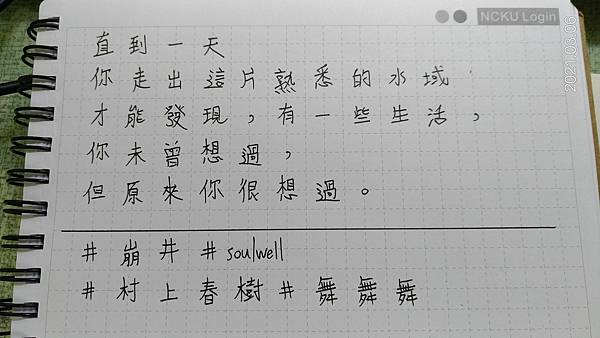 NCKU Login
2021.03.06
直到一天
你走出這片熟悉的水域
才能發現，有一些生活，
你未曾想過，
但原來你很想過。
#崩井#soulwell
#村上春樹#舞舞舞